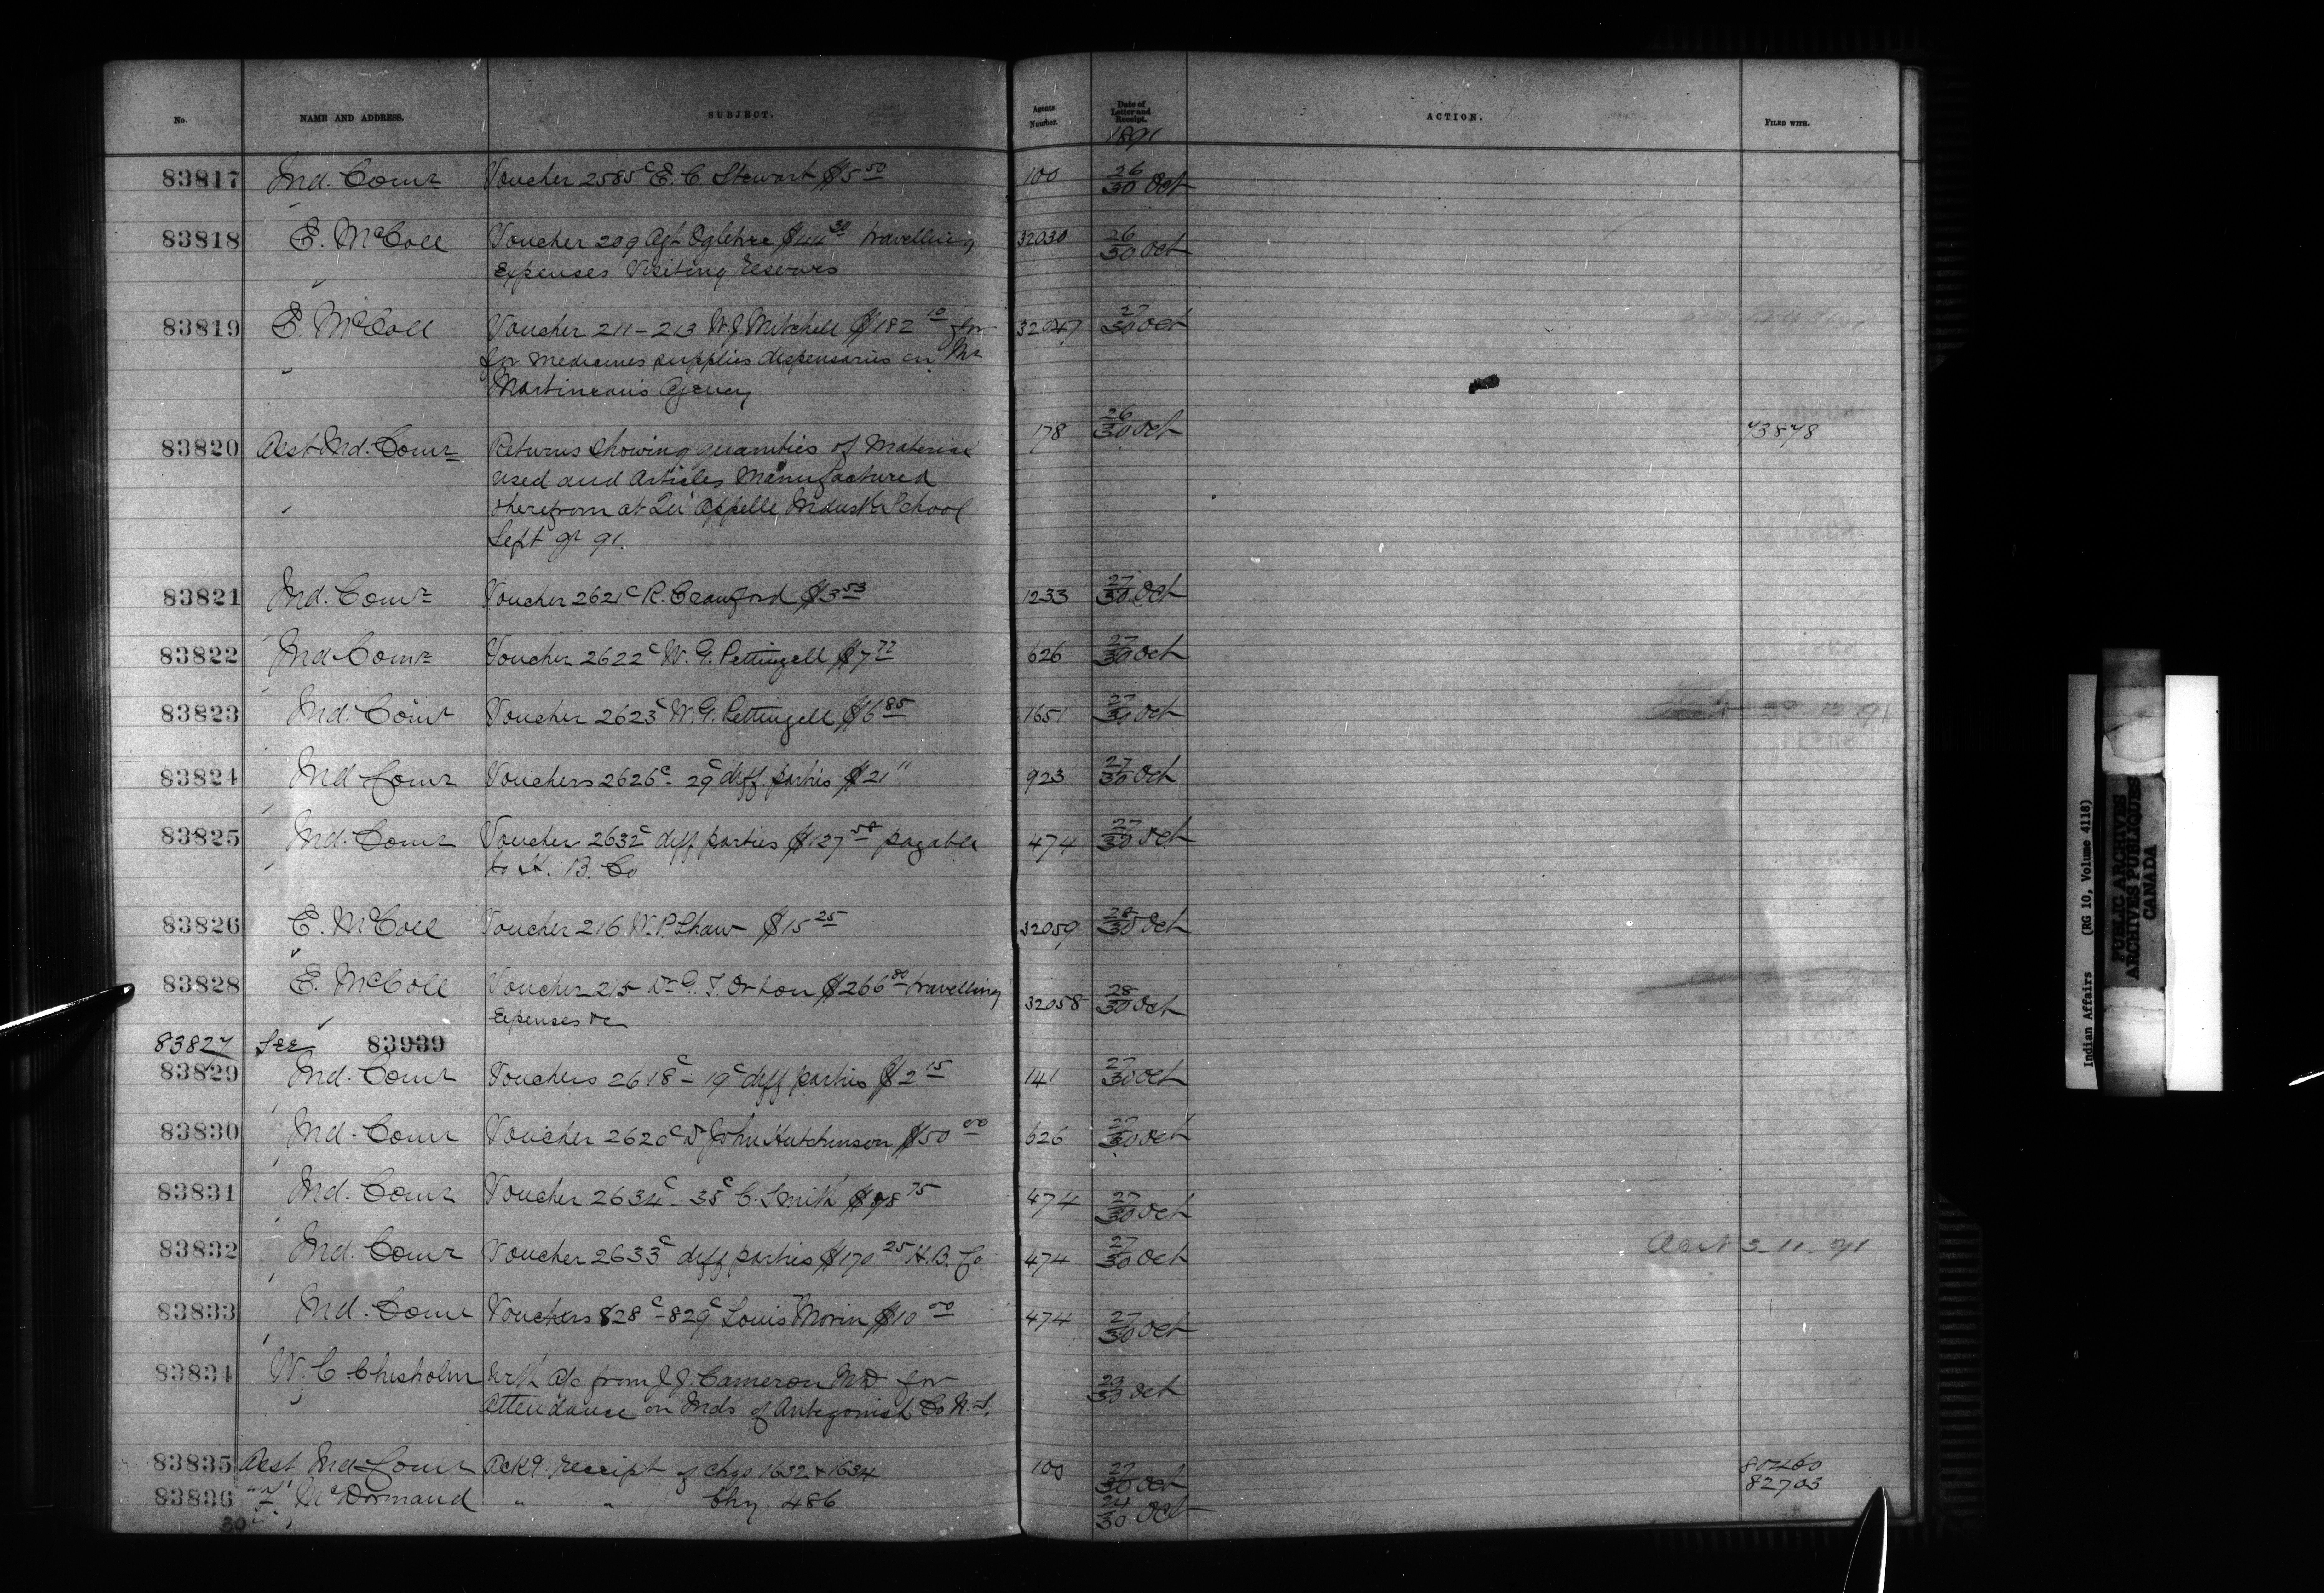 No. NAME AND ADDRESS. SUBJECT. Agents Number. Date of Letter and Receipt. ACTION. FILED WITH.
1891
83817 Ind. Comr Voucher 2585c E. C Stewart $5 50 100 26/30 Oct
83818 E. McColl Voucher 209 Agt Ogletree $44 30 travelling 32030 26/30 Oct
Expenses Visiting Reserves
83819 E. McColl Voucher 211-213 W. J Mitchell $182 10 for 32047 27/30 Oct
for medicines supplies dispensaries in Mr
Martineau's Agency
83820 Asst Ind. Comr Returns showing quantities of Material 178 26/30 Oct 73878
used and Articles Manufactured
therefrom at Qu'Appelle Indust School
Sept qr 91.
83821 Ind. Comr Voucher 2621c R. Crawford $3 53 1233 27/30 Oct
83822 Ind Comr Voucher 2622c W. G. Pettingell $7 77 626 27/30 Oct
83823 Ind. Comr Voucher 2623c W. G. Pettingell $6 85 1651 27/30 Oct
83824 Ind Comr Vouchers 2626c - 29c diff. parties $21 11 923 27/30 Oct
83825 Ind. Comr Voucher 2632c diff parties $127 58 payable 474 27/30 Oct
to H. B. Co
83826 E. McColl Voucher 216 W. P. Shaw $15 25 32059 28/30 Oct
83828 E. McColl Voucher 215 Dr G. T. Orton $266 80 travelling 32058 28/30 Oct
Expenses &c
83827 See 83939
83829 Ind. Comr Vouchers 2618 - 19c diff parties $2 15 141 27/30 Oct
83830 Ind. Comr Voucher 2620c Dr John Hutchinson $50 00 626 27/30 Oct
83831 Ind. Comr Voucher 2634c - 35c C. Smith $98 75 474 27/30 Oct
83832 Ind. Comr Voucher 2633c diff parties $170 25 H. B. Co 474 27/30 Oct 3 11 91
83833 Ind. Comr Vouchers 828c - 829c Louis Morin $10 00 474 27/30 Oct
83834 W. C Chisholm With a/c from J. J. Cameron MD for 29/30 Oct
Attendance on Inds of Antigonish Co N. S.
83835 Asst Ind Comr Ack'g. receipt of chqs 1632 & 1634 100 27/30 Oct 80460
83836 McDormand " " Chq 486 24/30 Oct 82703
30
Indian Affairs (RG 10, Volume 4118)
PUBLIC ARCHIVES
ARCHIVES PUBLIQUES
CANADA